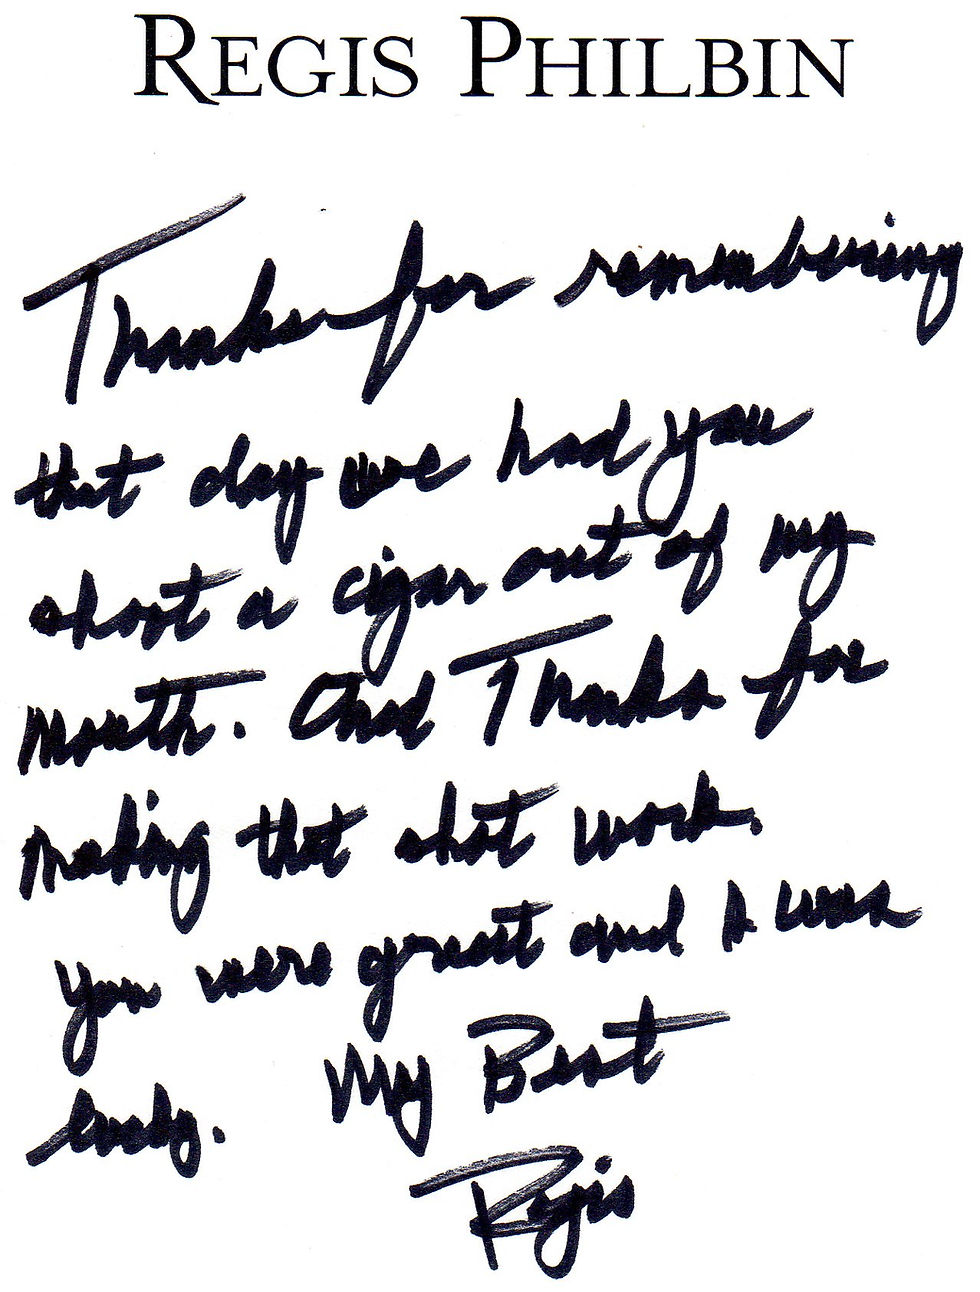 REGIS PHILBIN
Thanks for remembering
that day we had you
shoot a cigar out of my
mouth. And Thanks for
making that shot work.
You were great and I was
lucky. My Best
Regis